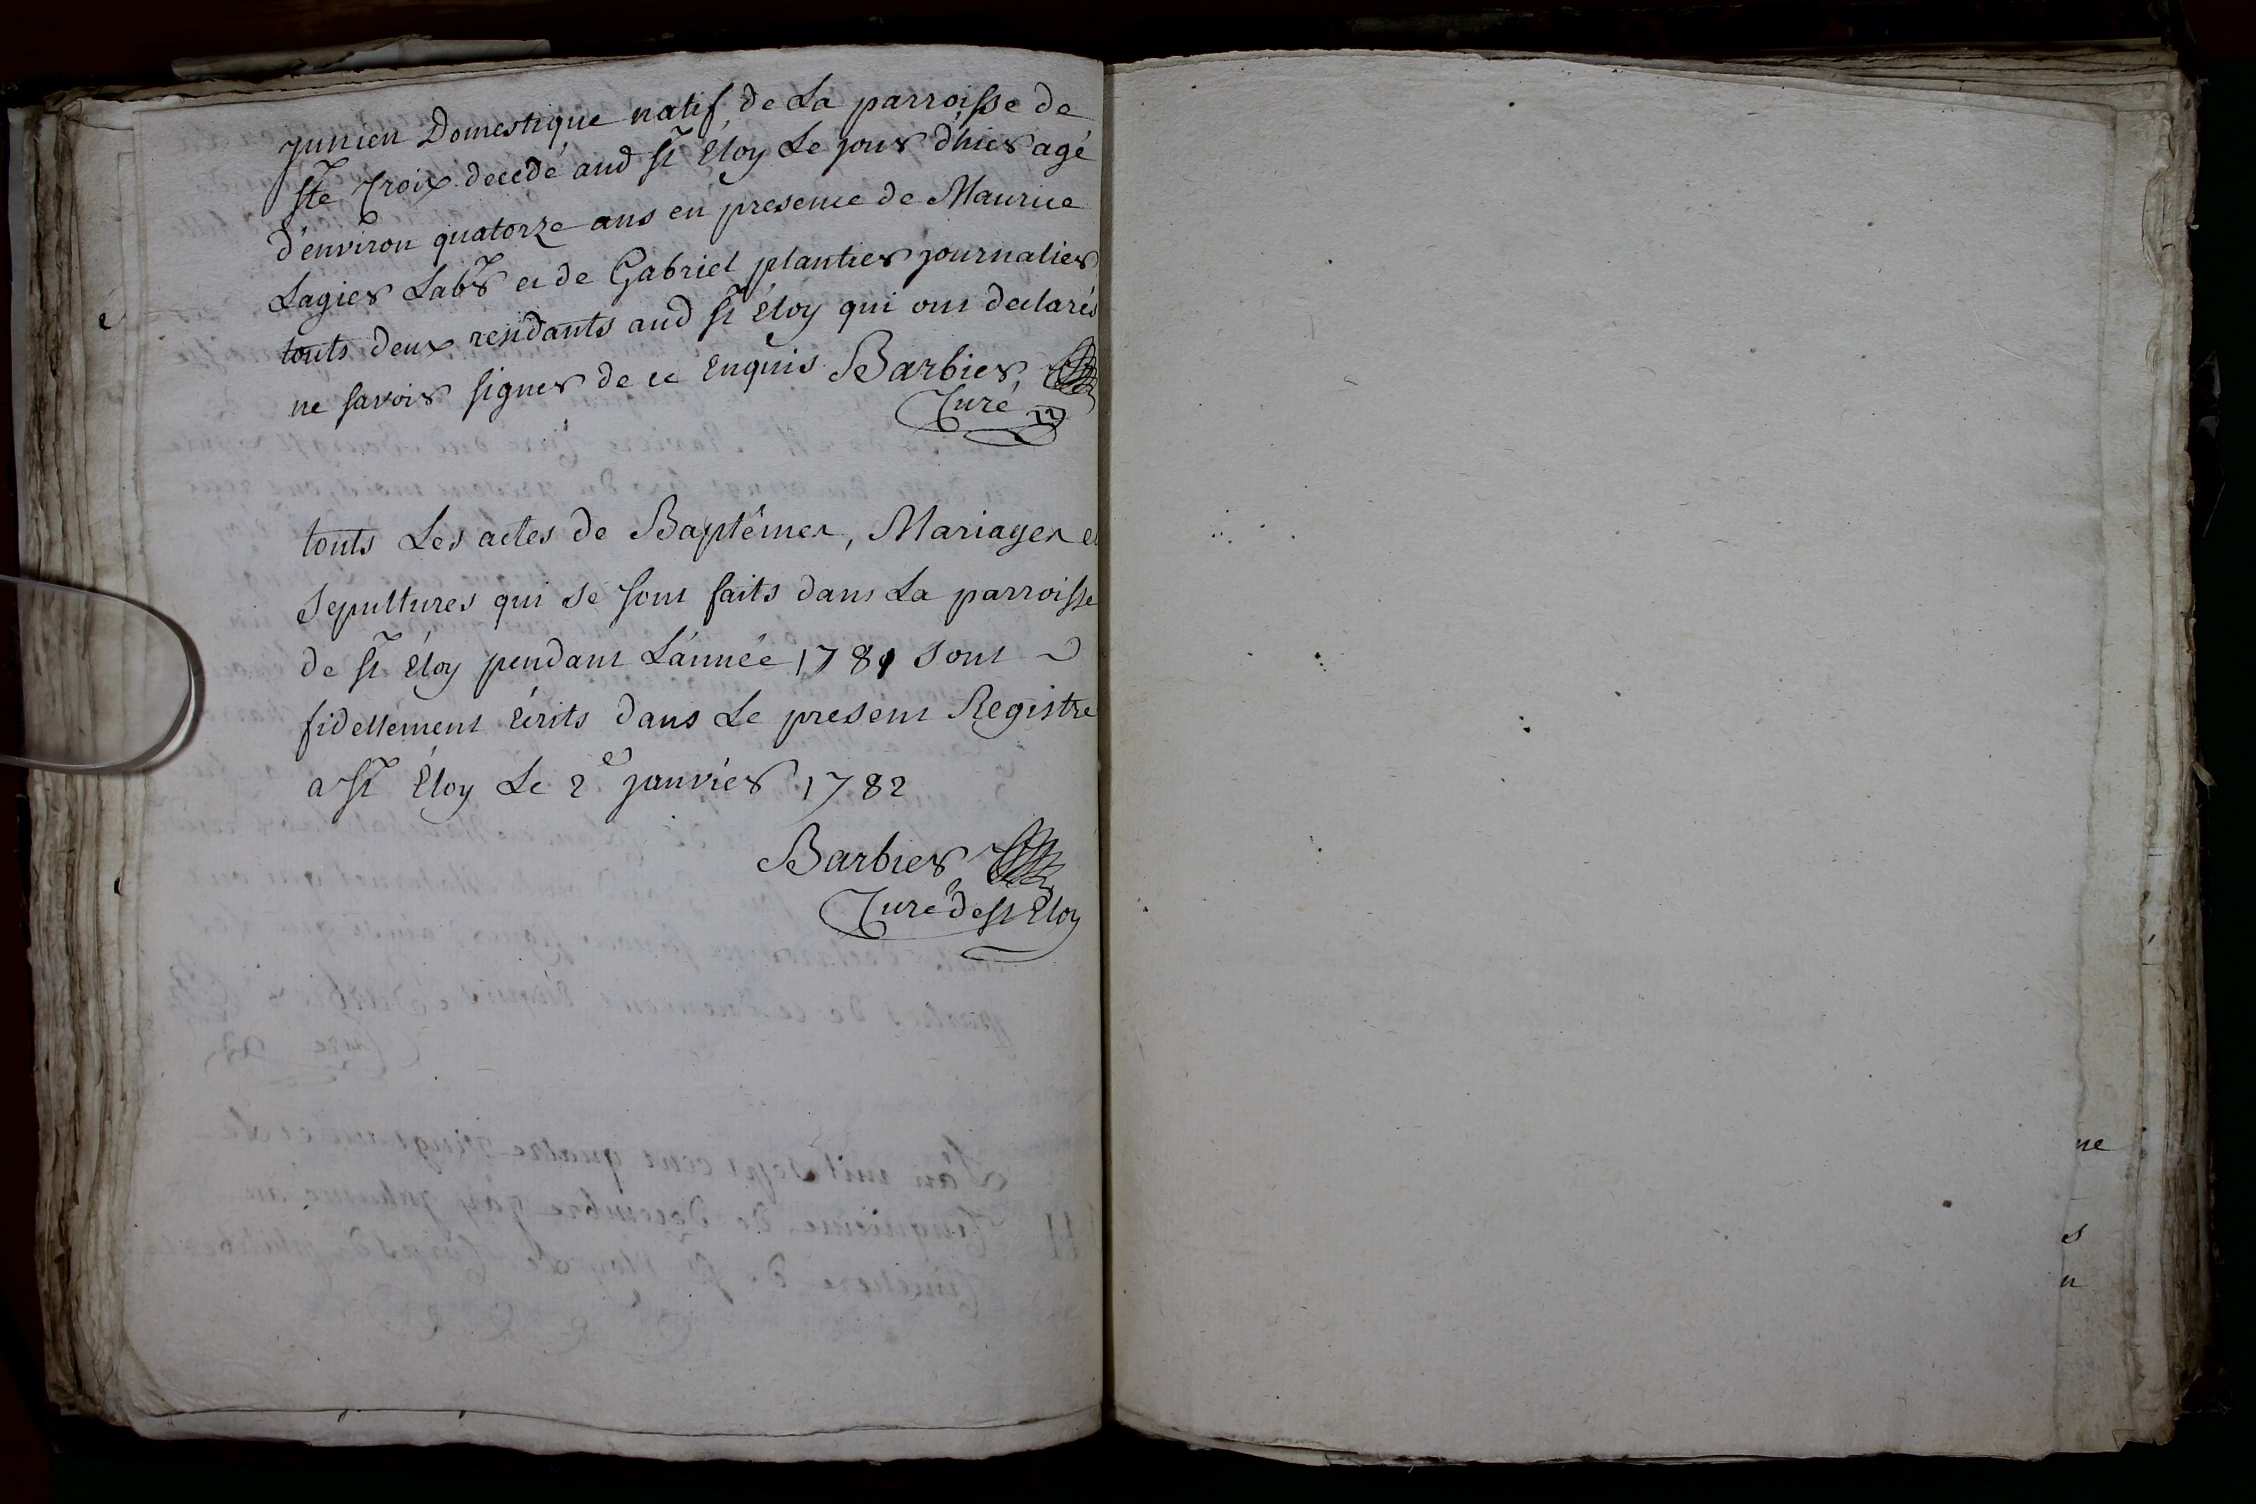 junien Domestique natif, de La parroisse de
Ste Croix decedé aud St Eloy Le jour d'hier agé
d'environ quatorze ans en presence de Maurice
Lagier Labr et de Gabriel plantier journalier
touts deux residants aud St Eloy qui ont declarés
ne savoir signer de ce Enquis Barbier,
Curé
touts Les actes de Baptêmes, Mariages et
Sepultures qui se sont faits dans La parroisse
de St Eloy pendant L'année 1781 sont
fidellement Ecrits dans Le present Registre
a St Eloy Le 2e janvier 1782
Barbier
Curé de St Eloy
ne
s
n